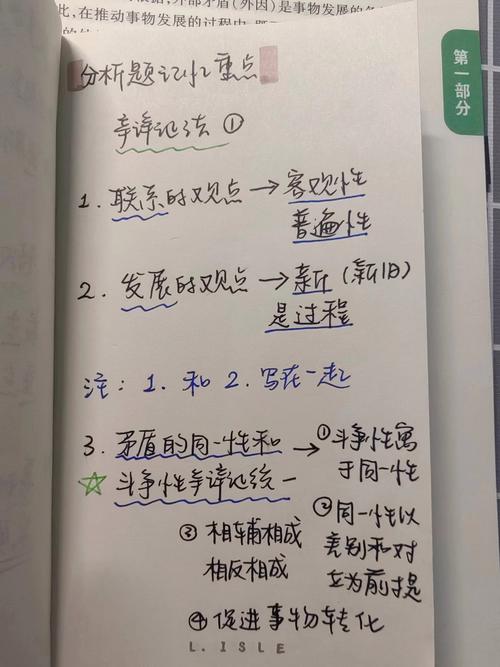 此, 在推动事物发展的过程中
第一部分
分析题记忆重点
辛辩记法 ①
1. 联系的观点 → 客观性
普遍性
2. 发展的观点 → 新 (新旧)
是过程
注: 1. 和 2. 写在一起
3. 矛盾的同一性和
斗争性辛辩记统一
→ ① 斗争性寓
于同一性
② 同一性以
差别和对
立为前提
③ 相辅相成
相反相成
④ 促进事物转化
L. ISLE